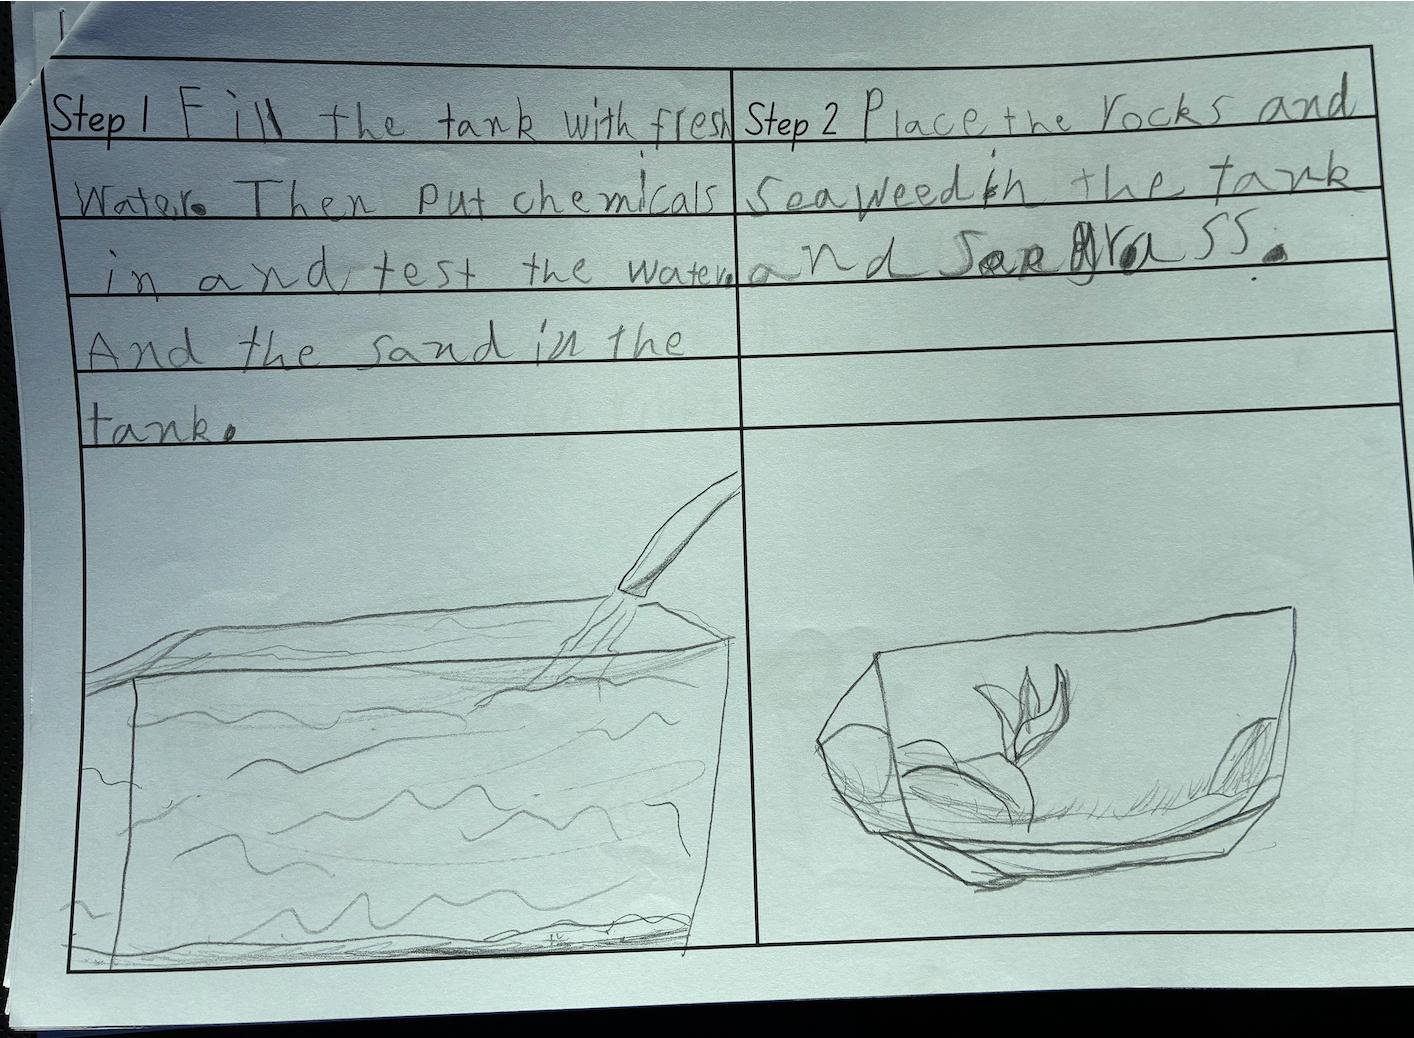 Step 1 Fill the tank with fresh
water. Then put chemicals
in and test the water.
And the sand in the
tank.
Step 2 Place the rocks and
Seaweed in the tank
and Seagrass.